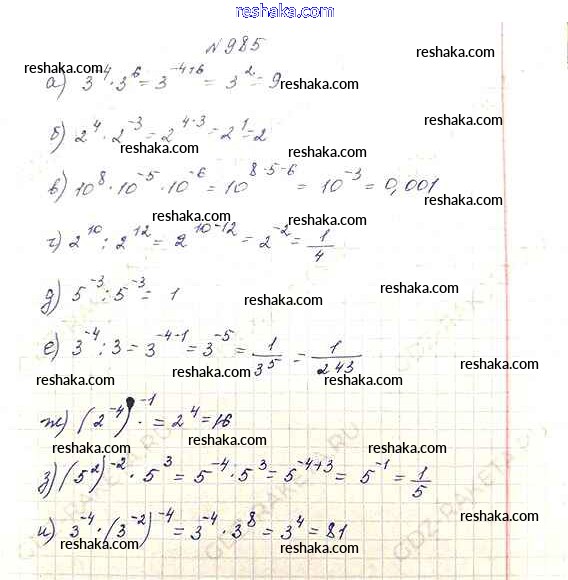 reshaka.com
№985
reshaka.com
а) 3^-4 · 3^6 = 3^-4+6 = 3^2 = 9
reshaka.com
reshaka.com
б) 2^4 · 2^-3 = 2^4-3 = 2^1 = 2
reshaka.com
reshaka.com
в) 10^8 · 10^-5 · 10^-6 = 10^8-5-6 = 10^-3 = 0,001
reshaka.com
reshaka.com
г) 2^10 : 2^12 = 2^10-12 = 2^-2 = 1/4
reshaka.com
д) 5^-3 : 5^-3 = 1
reshaka.com
reshaka.com
е) 3^-4 : 3 = 3^-4-1 = 3^-5 = 1/3^5 = 1/243
reshaka.com
reshaka.com
reshaka.com
ж) (2^-4)^-1 = 2^4 = 16
reshaka.com
reshaka.com
з) (5^2)^-2 · 5^3 = 5^-4 · 5^3 = 5^-4+3 = 5^-1 = 1/5
reshaka.com
reshaka.com
и) 3^-4 · (3^-2)^-4 = 3^-4 · 3^8 = 3^4 = 81
reshaka.com
reshaka.com
reshaka.com
GDZ-RAKETA.RU